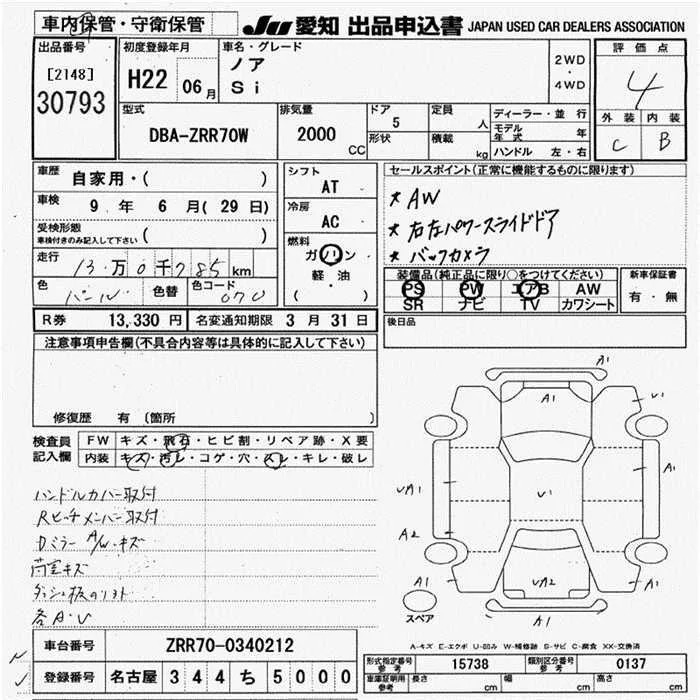 車内保管・守衛保管
JU 愛知 出品申込書 JAPAN USED CAR DEALERS ASSOCIATION
出品番号
[2148]
30793
初度登録年月
H22 06月
車名・グレード
ノア
Si
2WD
・
4WD
評価点
4
外装 内装
C B
型式
DBA-ZRR70W
排気量
2000 CC
ドア
5
形状
定員
人
積載
kg
ディーラー・並行
モデル年式 年
ハンドル 左・右
車歴 自家用・( )
車検 9 年 6 月( 29 日)
受検形態
車検付きのみ記入して下さい ( )
走行 13万0千785km
色 パール 色替 色コード 070
シフト
AT
冷房
AC
燃料
ガソリン
軽・油
( )
セールスポイント(正常に機能するものに限ります)
* AW
* 右左パワースライドドア
* バックカメラ
装備品(純正品に限り○をつけてください)
PS PW エアB AW
SR ナビ TV カワシート
新車保証書
有・無
R券 13,330 円 名変通知期限 3 月 31 日
後日品
注意事項申告欄(不具合内容等は具体的に記入して下さい)
修復歴 有 (箇所 )
検査員
記入欄
FW キズ・飛石・ヒビ割・リペア跡・X要
内装 キズ・汚レ・コゲ・穴・スレ・キレ・破レ
ハンドルカバー取付
Rヒッチメンバー取付
Dミラー A/W・キズ
荷室キズ
ダッシュ板のソリト
各A・U
A1
A1
U1
UA1
U1
A1
A2
UA2
A1
A1
A1
スペア
A-キズ E-エクボ U-凹み W-補修跡 S-サビ C-腐食 XX-交換済
車台番号 ZRR70-0340212
登録番号 名古屋 344 ち 5000
型式指定番号 参考 15738 類別区分番号 参考 0137
車庫証明用 参考 長さ cm 幅 cm 高さ cm